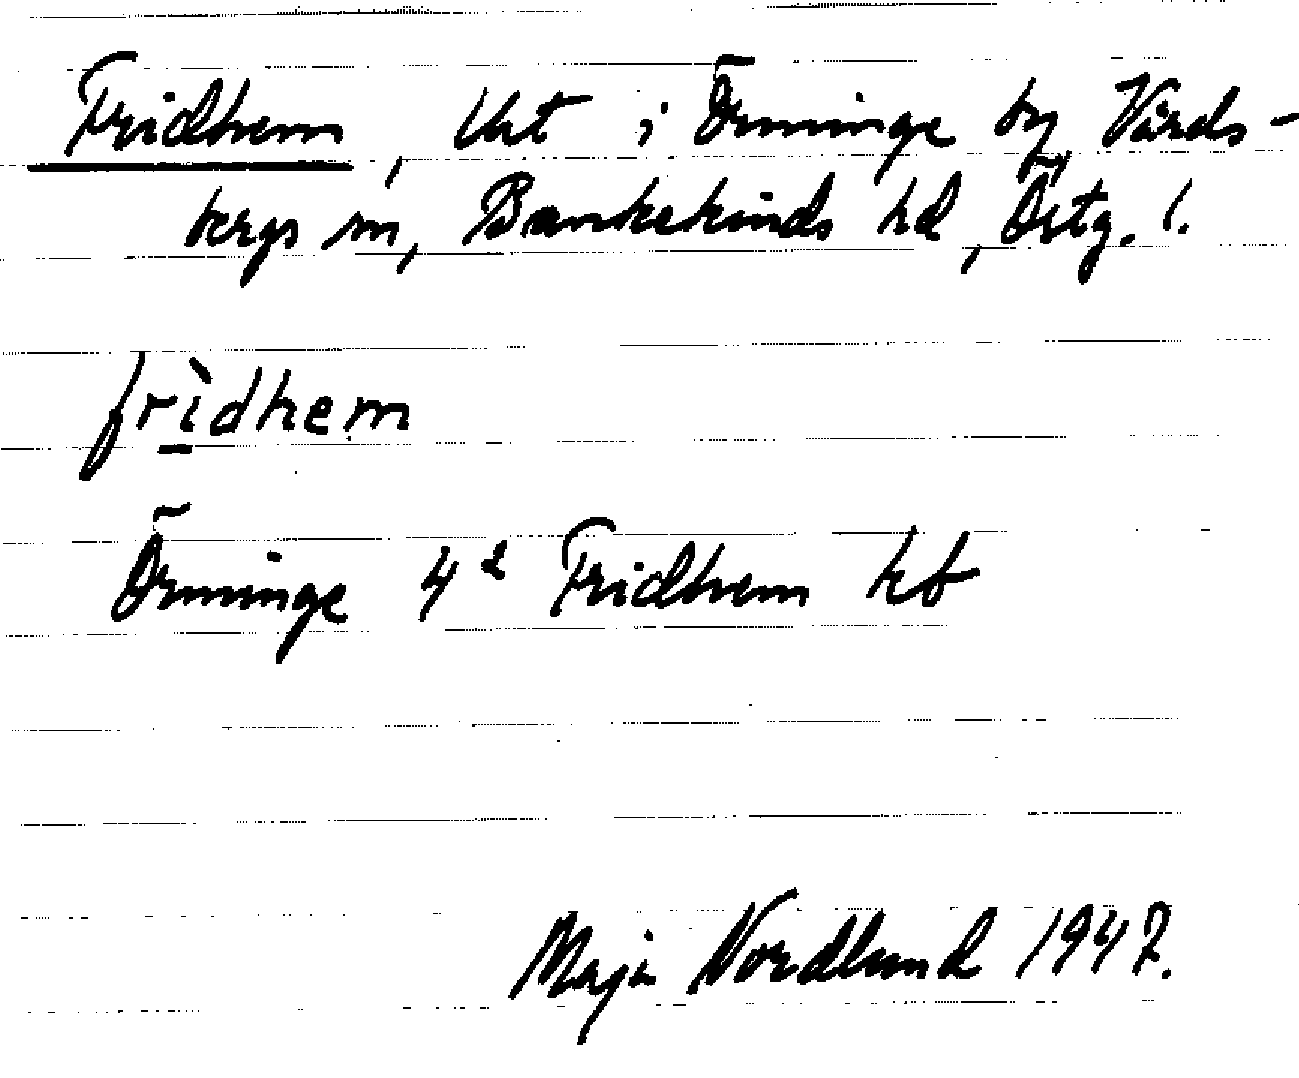 Fridhem, lht i Örminge by, Vårds-
bergs sn, Bankekinds hd, Östg. l.
frìdhem
Örminge 4² Fridhem kb
Maja Nordlund 1947.